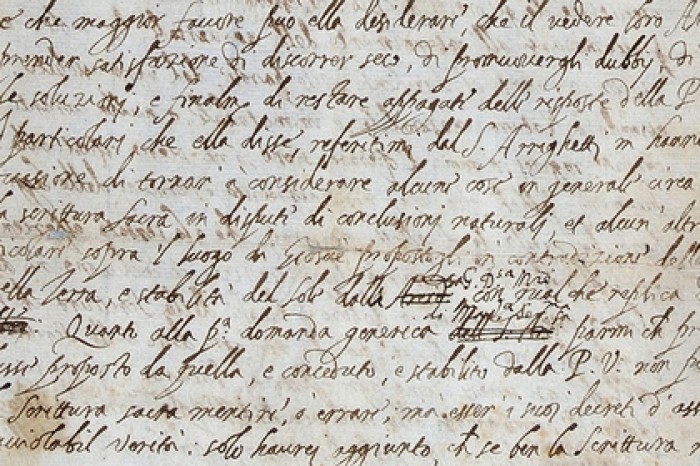 e che maggior fauore può ella desiderare, che il vedere loro
prender satisfazione di discorrer seco, di promuovergli dubbj, di
le soluzioni, e finalm. di restare appagate delle risposte della P.
particolari che ella disse, referitimi dal S. Arrighetti m' hanno
casione di tornar' à considerare alcune cose in generale circa
la scrittura sacra in dispute di conclusioni naturali, et alcun' altre
ticolari sopra 'l luogo di Giosuè propostogli in contradizione della
ella Terra, e stabilità del Sole dalla con qualche replica
Quanto alla p.a domanda generica di Mad.a Ser.ma parmi ch'
esse proposto da quella, e conceduto, e stabilito dalla P. V. non
Scrittura sacra mentire, ò errare; mà esser i suoi decreti d'
inuiolabil verità: solo haurei aggiunto, ch' se ben la Scrittura